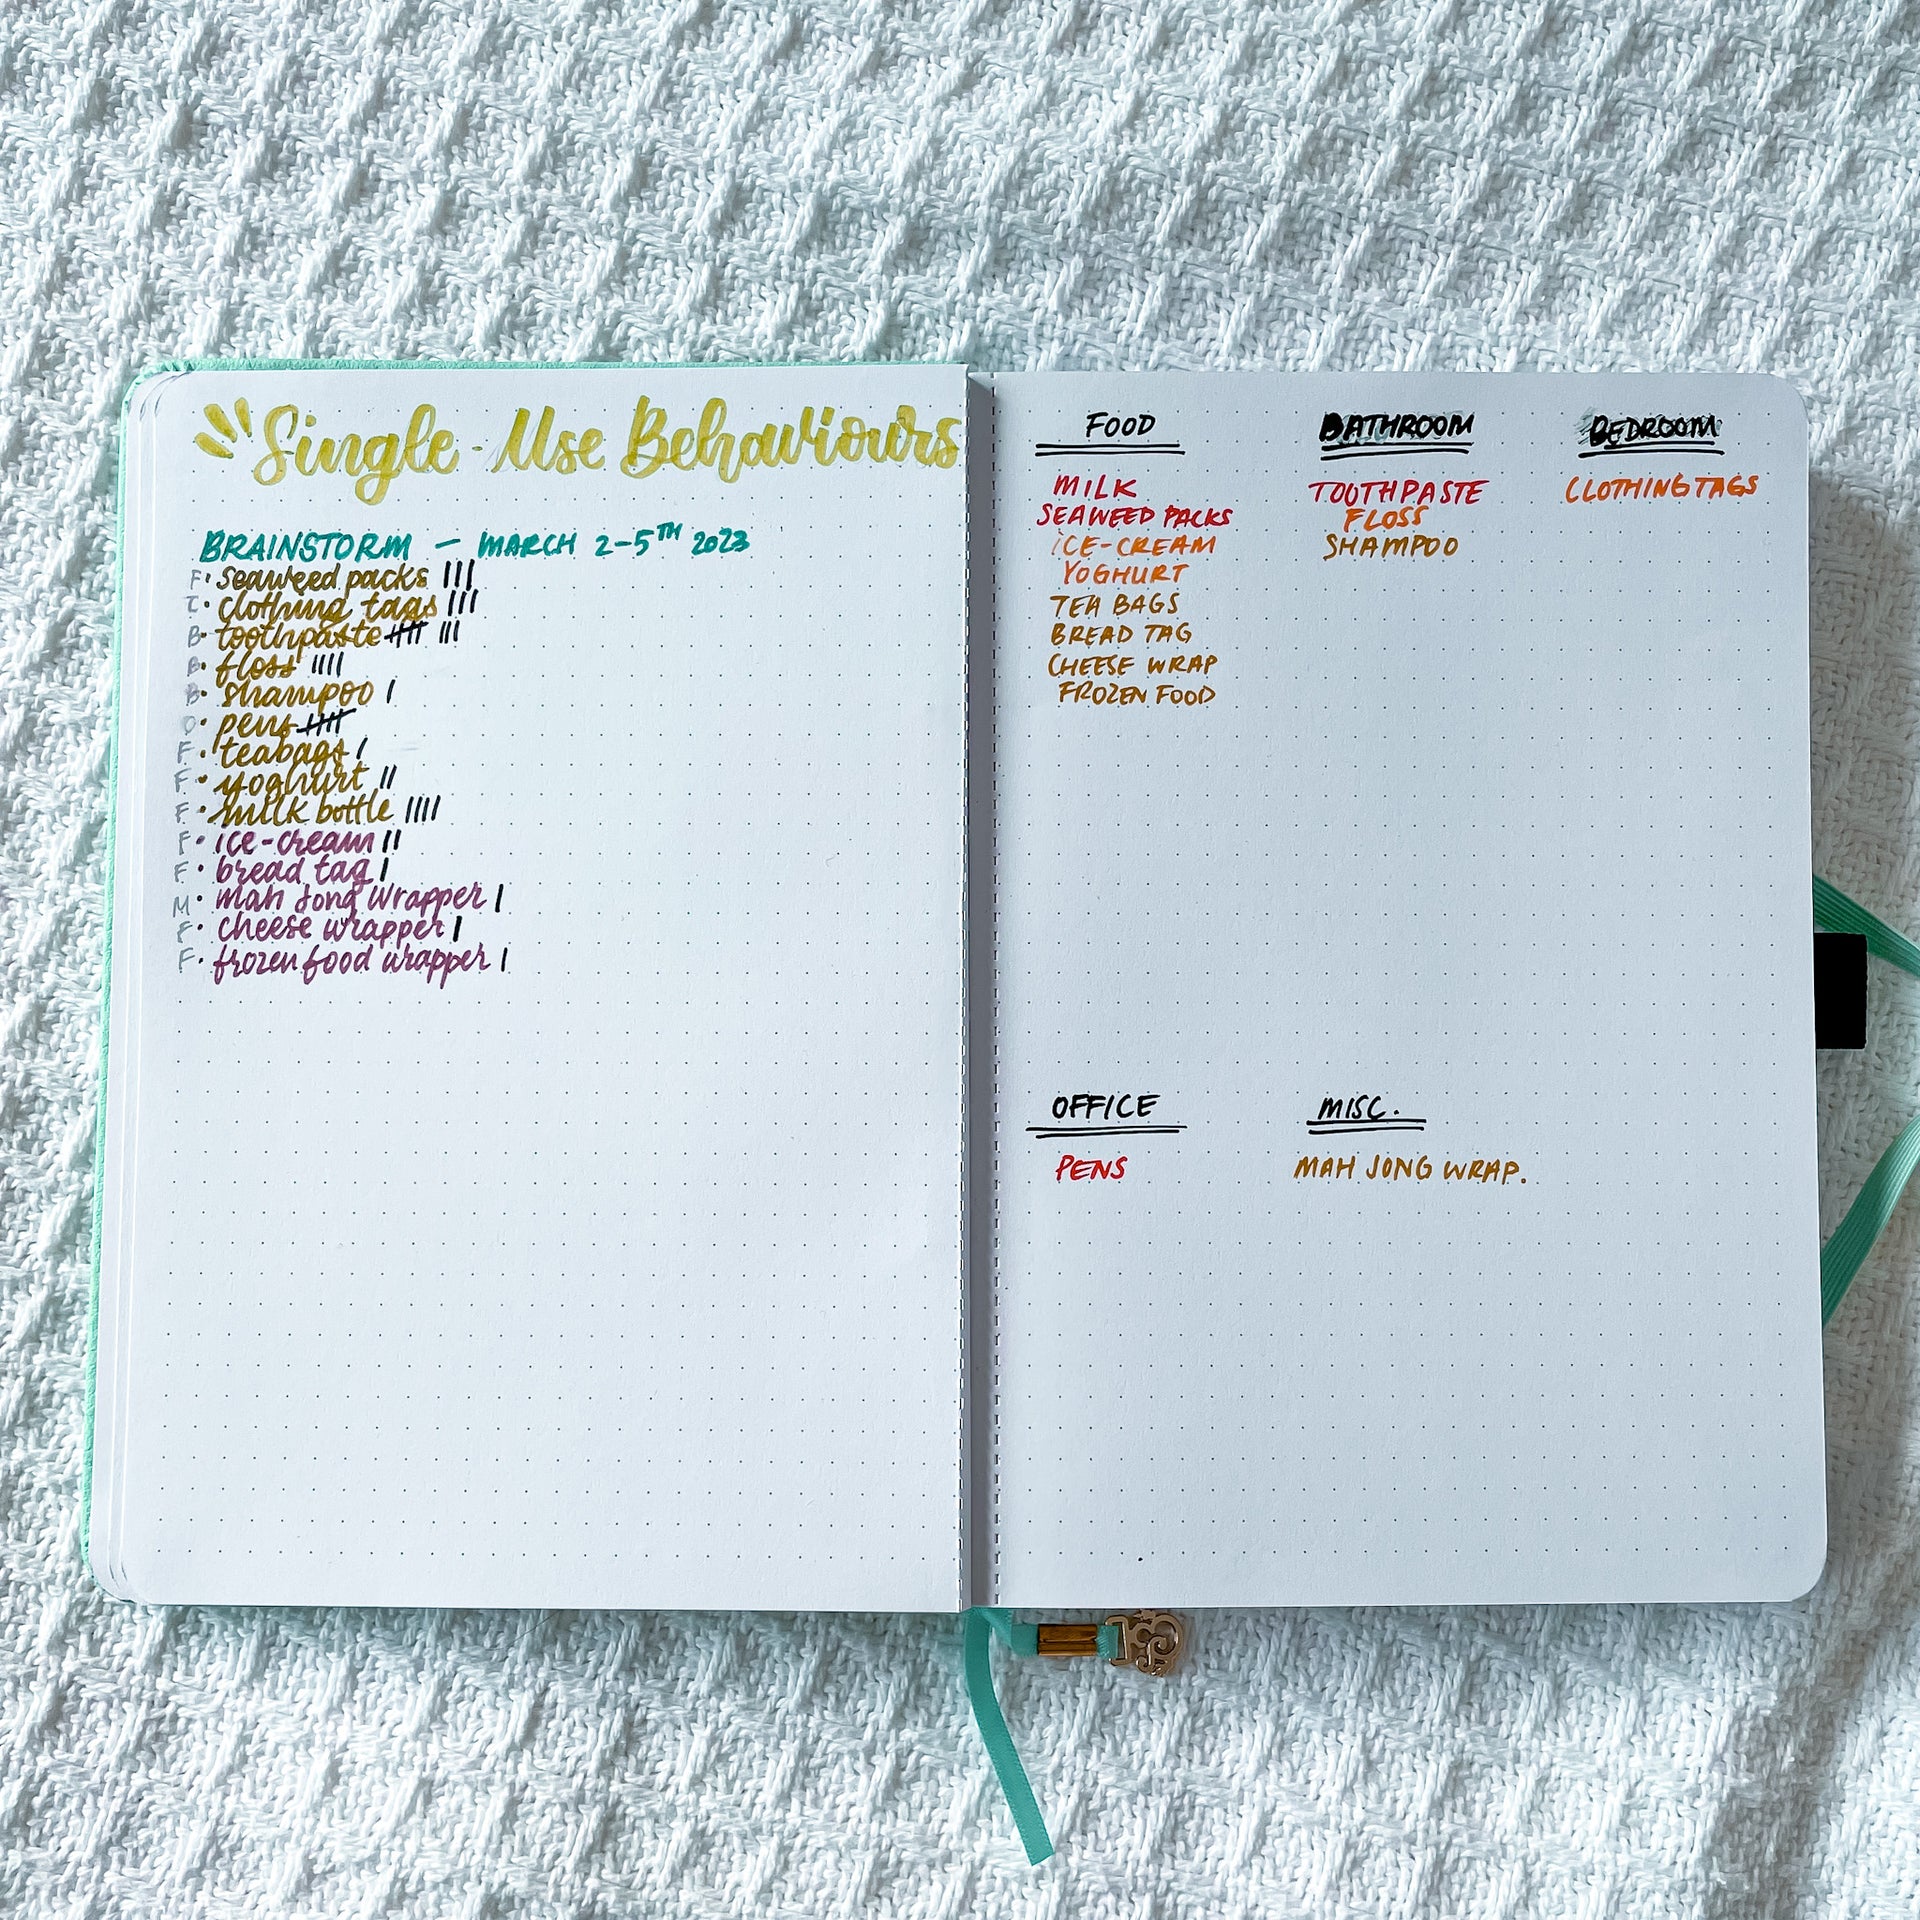 Single-Use Behaviours
BRAINSTORM — MARCH 2-5TH 2023
F • seaweed packs |||
C • clothing tags |||
B • toothpaste |||| |||
B • floss ||||
B • shampoo |
O • pens ||||
F • teabags |
F • yoghurt ||
F • milk bottle ||||
F • ice-cream ||
F • bread tag |
M • mah jong wrapper |
F • cheese wrapper |
F • frozen food wrapper |
FOOD
MILK
SEAWEED PACKS
ICE-CREAM
YOGHURT
TEA BAGS
BREAD TAG
CHEESE WRAP
FROZEN FOOD
BATHROOM
TOOTHPASTE
FLOSS
SHAMPOO
BEDROOM
CLOTHING TAGS
OFFICE
PENS
MISC.
MAH JONG WRAP.